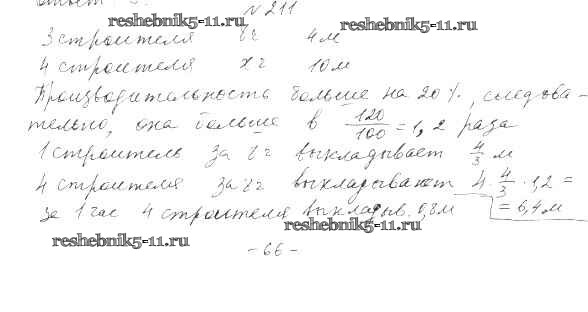 № 211
reshebnik5-11.ru reshebnik5-11.ru
3 строителя 8 ч 4 м
4 строителя x ч 10 м
Производительность больше на 20 %, следова-
тельно, она больше в 120/100 = 1,2 раза
1 строитель за 8 ч выкладывает 4/3 м
4 строителя за 8 ч выкладывают 4 · 4/3 · 1,2 =
за 1 час 4 строителя выкладыв. 0,8 м = 6,4 м
reshebnik5-11.ru reshebnik5-11.ru
- 66 -